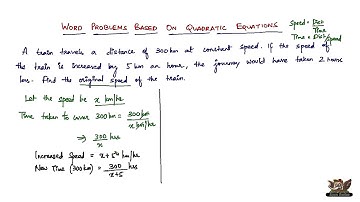 WORD PROBLEMS BASED ON QUADRATIC EQUATIONS
Speed = Dist/Time
Time = Dist/Speed
A train travels a distance of 300 km at constant speed. If the speed of
the train is increased by 5 km an hour, the journey would have taken 2 hours
less. Find the original speed of the train.
Let the speed be x km/hr
Time taken to cover 300 km = 300 km / x km/hr
⇒ 300/x hrs
Increased Speed = x+5 km/hr
New Time (300 km) = 300/x+5 hrs